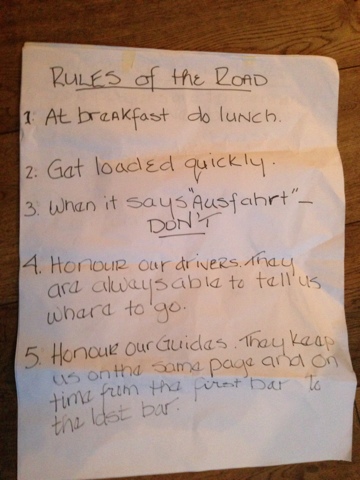 RULES of the ROAD
1: At breakfast do lunch.
2: Get loaded quickly.
3: When it says "Ausfahrt" –
DON'T
4. Honour our drivers. They
are always able to tell us
where to go.
5. Honour our Guides. They keep
us on the same page and on
time from the first bar to
the last bar.